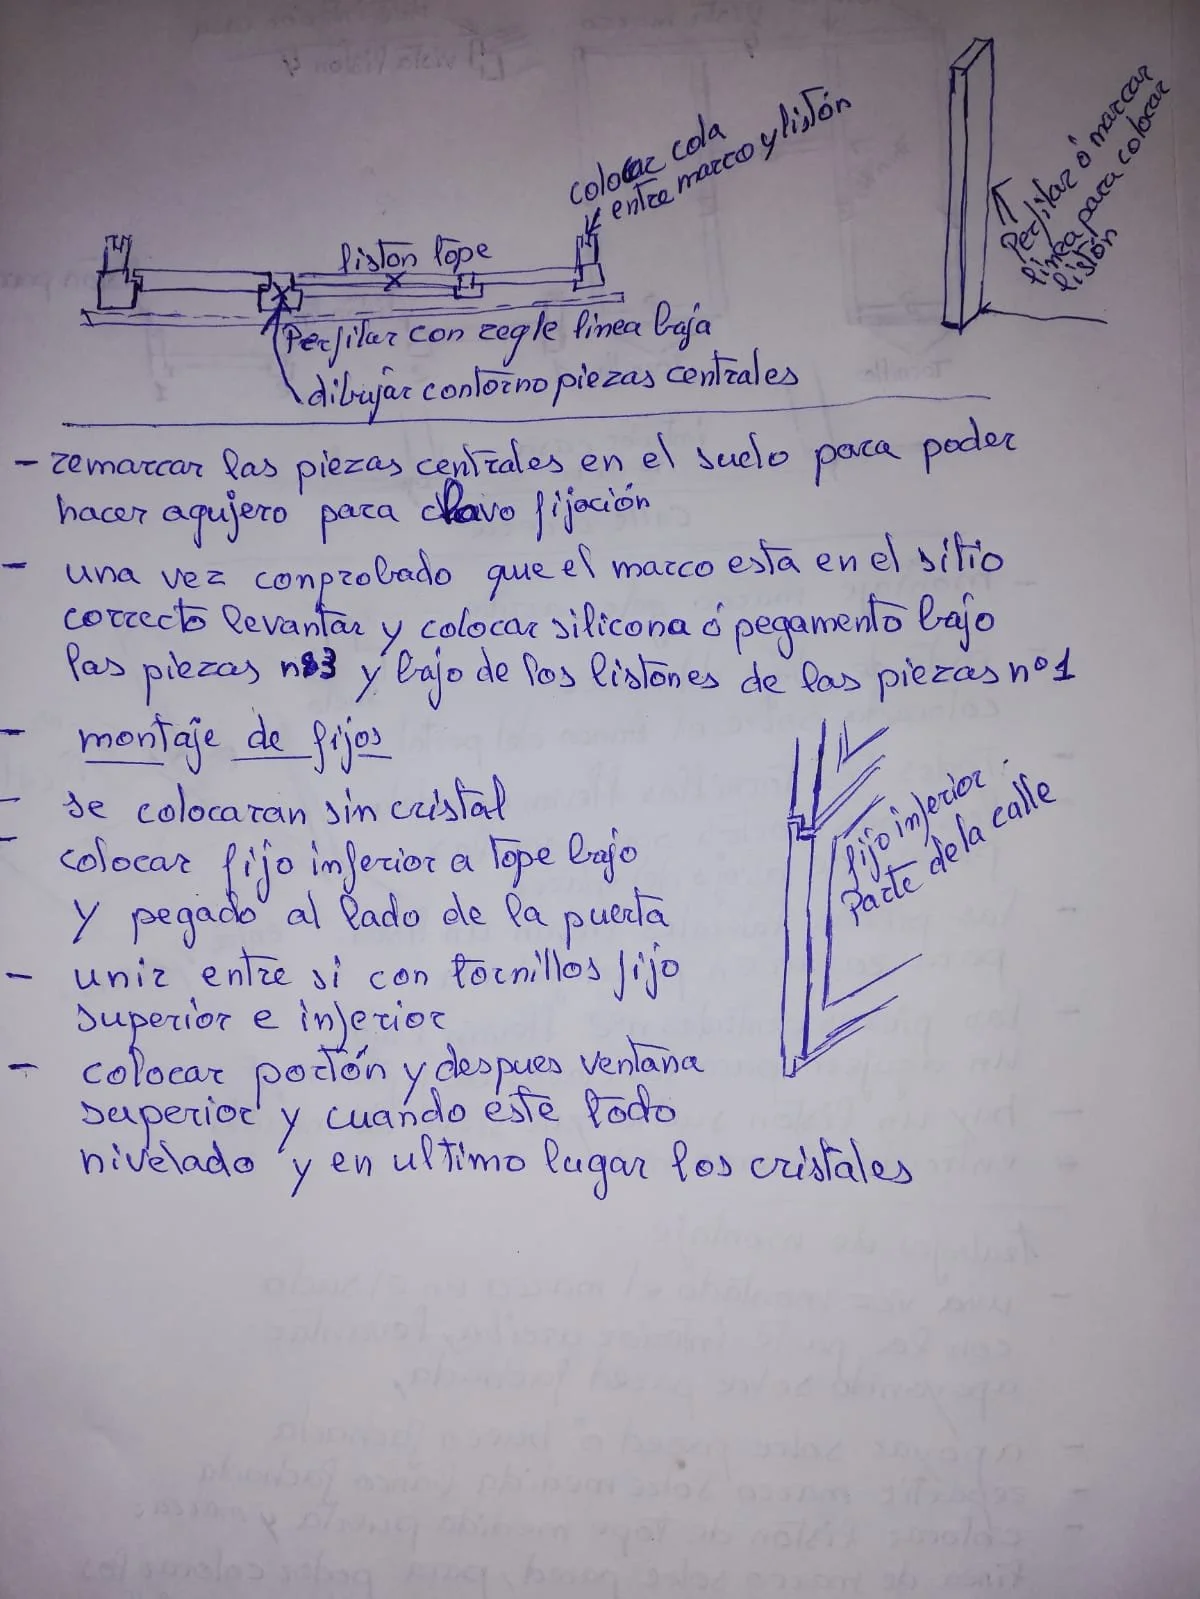 colocar cola
entre marco y listón
Perfilar ó marcar
linea para colocar
listón
liston tope
Perfilar con regle linea baja
dibujar contorno piezas centrales
- remarcar las piezas centrales en el suelo para poder
hacer agujero para clavo fijación
- una vez conprobado que el marco esta en el sitio
correcto levantar y colocar silicona ó pegamento bajo
las piezas nº3 y bajo de los listones de las piezas nº1
- montaje de fijos
- se colocaran sin cristal
- colocar fijo inferior a tope bajo
y pegado al lado de la puerta
- unir entre si con tornillos fijo
superior e inferior
- colocar portón y despues ventana
superior y cuando este todo
nivelado y en ultimo lugar los cristales
fijo inferior
Parte de la calle